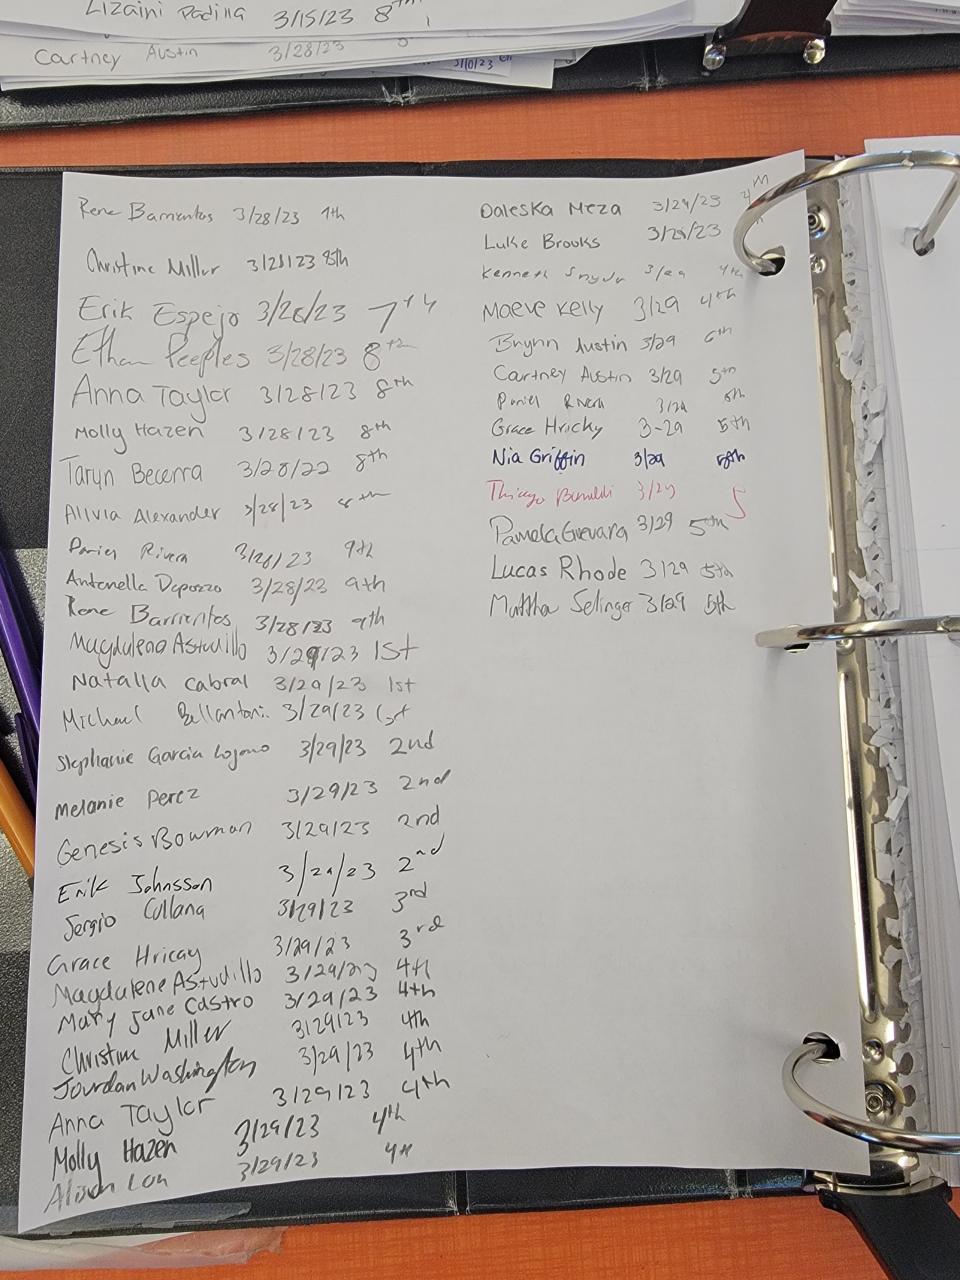 Lizaini Padilla 3/15/23 8th
Cartney Austin 3/28/23
Rene Barrientos 3/28/23 9th
Christine Miller 3/28/23 8th
Erik Espejo 3/28/23 7th
Ethan Peeples 3/28/23 8th
Anna Taylor 3/28/23 8th
Molly Hazen 3/28/23 8th
Taryn Becerra 3/28/22 8th
Alivia Alexander 3/28/23 8th
Daniel Rivera 3/28/23 9th
Antonella Depozzo 3/28/23 9th
Rene Barrientos 3/28/23 9th
Magdalena Astudillo 3/29/23 1st
Natalia Cabral 3/29/23 1st
Michael Bellantoni 3/29/23 1st
Stephanie Garcia Lozano 3/29/23 2nd
Melanie Perez 3/29/23 2nd
Genesis Bowman 3/29/23 2nd
Erik Johnsson 3/29/23 2nd
Sergio Collana 3/29/23 3rd
Grace Hricay 3/29/23 3rd
Magdalene Astudillo 3/29/23 4th
Mary Jane Castro 3/29/23 4th
Christine Miller 3/29/23 4th
Jourdan Washington 3/29/23 4th
Anna Taylor 3/29/23 4th
Molly Hazen 3/29/23 4th
Alison 3/29/23 4th
Daleska Meza 3/29/23 4th
Luke Brooks 3/29/23
Kenneth Snyder 3/29 4th
Maeve Kelly 3/29 4th
Brynn Austin 3/29 6th
Cartney Austin 3/29 5th
Daniel Rivera 3/29 5th
Grace Hricky 3-29 5th
Nia Griffin 3/29 5th
Thiago 3/29 5
Pamela Guevara 3/29 5th
Lucas Rhode 3/29 5th
Mattha Selinger 3/29 5th